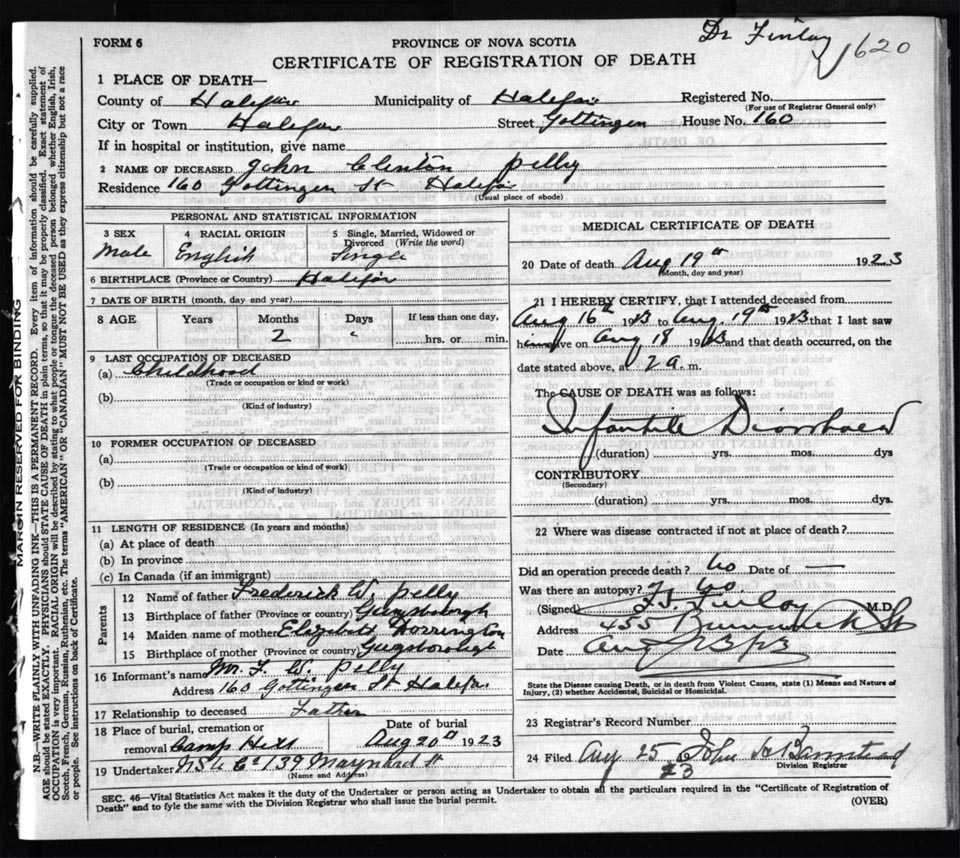 Dr Finlay 1620
FORM 6
PROVINCE OF NOVA SCOTIA
CERTIFICATE OF REGISTRATION OF DEATH
1 PLACE OF DEATH—
County of Halifax Municipality of Halifax Registered No.
(For use of Registrar General only)
City or Town Halifax Street Gottingen House No. 160
If in hospital or institution, give name
2 NAME OF DECEASED John Clinton Pelly
Residence 160 Gottingen St Halifax
(Usual place of abode)
PERSONAL AND STATISTICAL INFORMATION
3 SEX 4 RACIAL ORIGIN 5 Single, Married, Widowed or Divorced (Write the word)
Male English Single
6 BIRTHPLACE (Province or Country) Halifax
7 DATE OF BIRTH (month, day and year)
8 AGE Years Months Days If less than one day,
2 hrs. or min.
9 LAST OCCUPATION OF DECEASED
(a) Childhood
(Trade or occupation or kind or work)
(b)
(Kind of industry)
10 FORMER OCCUPATION OF DECEASED
(a)
(Trade or occupation or kind or work)
(b)
(Kind of industry)
11 LENGTH OF RESIDENCE (In years and months)
(a) At place of death
(b) In province
(c) In Canada (if an immigrant)
Parents
12 Name of father Frederick W. Pelly
13 Birthplace of father (Province or country) Guysborough
14 Maiden name of mother Elizabeth Horrington
15 Birthplace of mother (Province or country) Guysborough
16 Informant's name M. F. W. Pelly
Address 160 Gottingen St Halifax
17 Relationship to deceased Father
18 Place of burial, cremation or removal Camp Hill
Date of burial Aug 20th 1923
19 Undertaker N S U Co 139 Maynard St
(Name and Address)
MEDICAL CERTIFICATE OF DEATH
20 Date of death Aug 19th 1923
(Month, day and year)
21 I HEREBY CERTIFY, that I attended deceased from
Aug 16th 1923 to Aug. 19th 1923 that I last saw
him alive on Aug 18 1923 and that death occurred, on the
date stated above, at 2 a. m.
The CAUSE OF DEATH was as follows:
Infantile Diorrhoea
(duration) yrs. mos. dys
CONTRIBUTORY
(Secondary)
(duration) yrs. mos. dys.
22 Where was disease contracted if not at place of death?
Did an operation precede death? No Date of —
Was there an autopsy? No
(Signed) Finlay M.D.
Address 455 Brunswick St
Date Aug 23/23
State the Disease causing Death, or in death from Violent Causes, state (1) Means and Nature of
Injury, (2) whether Accidental, Suicidal or Homicidal.
23 Registrar's Record Number
24 Filed Aug 25 23 John
Division Registrar
SEC. 46—Vital Statistics Act makes it the duty of the Undertaker or person acting as Undertaker to obtain all the particulars required in the "Certificate of Registration of
Death" and to fyle the same with the Division Registrar who shall issue the burial permit.
(OVER)
MARGIN RESERVED FOR BINDING
N.B.—WRITE PLAINLY WITH UNFADING INK—THIS IS A PERMANENT RECORD. Every item of information should be carefully supplied.
AGE should be stated EXACTLY. PHYSICIANS should STATE CAUSE OF DEATH in plain terms, so that it may be properly classified. Exact statement of
OCCUPATION is very important. RACIAL ORIGIN will be described by stating to what people or tongue the deceased person belonged whether English, Irish,
Scotch, French, German, Russian, Ruthenian, etc. The terms "AMERICAN" OR "CANADIAN" MUST NOT BE USED as they express citizenship but not a race
or people. See instructions on back of Certificate.